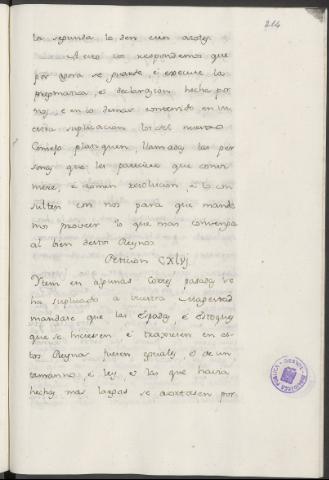 214
la segunda lo den cien azotes.
A esto vos respondemos que
por agora se guarde, e execute la
pregmatica, e declaracion hecha por
nos, e en lo demas contenido en vu
estra suplicacion los del nuestro
Consejo platiquen, llamadas las per
sonas que les pareciere que convi
niere, e tomen resolucion, e lo con
sulten con nos para que mande
mos proveer lo que mas convenga
al bien destos Reynos.
Peticion CXLVJ.
Item en algunas Cortes pasadas se
ha suplicado a vuestra Magestad
mandase que las Espadas, e estoques
que se hiciesen e traxiesen en es
tos Reynos fuesen yguales, e de un
tamanno, e ley, e las que havia
hechas mas largas se acortasen por